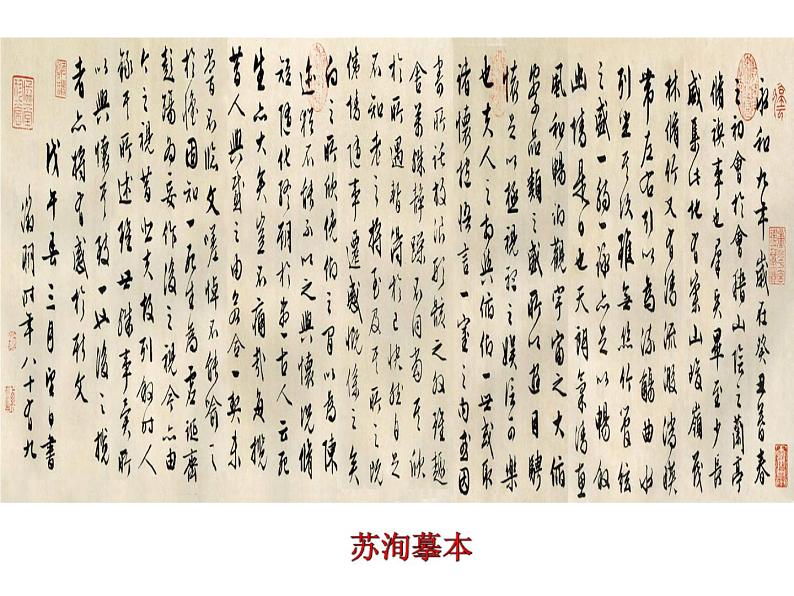 永和九年歲在癸丑暮春
之初會於會稽山陰之蘭亭
脩禊事也羣賢畢至少長
咸集此地有崇山峻嶺茂
林脩竹又有清流激湍映
帶左右引以為流觴曲水
列坐其次雖無絲竹管弦
之盛一觴一詠亦足以暢敘
幽情是日也天朗氣清惠
風和暢仰觀宇宙之大俯
察品類之盛所以遊目騁
懷足以極視聽之娛信可樂
也夫人之相與俯仰一世或取
諸懷抱悟言一室之內或因
寄所託放浪形骸之外雖趣
舍萬殊靜躁不同當其欣
於所遇暫得於己快然自足
不知老之將至及其所之既
倦情隨事遷感慨係之矣
向之所欣俛仰之間以為陳
迹猶不能不以之興懷況脩
短隨化終期於盡古人云死
生亦大矣豈不痛哉每攬
昔人興感之由若合一契未
嘗不臨文嗟悼不能喻之
於懷固知一死生為虛誕齊
彭殤為妄作後之視今亦由
今之視昔悲夫故列敘時人
錄其所述雖世殊事異所
以興懷其致一也後之攬
者亦將有感於斯文
戊午春三月望日書
徵明時年八十有九
苏洵摹本